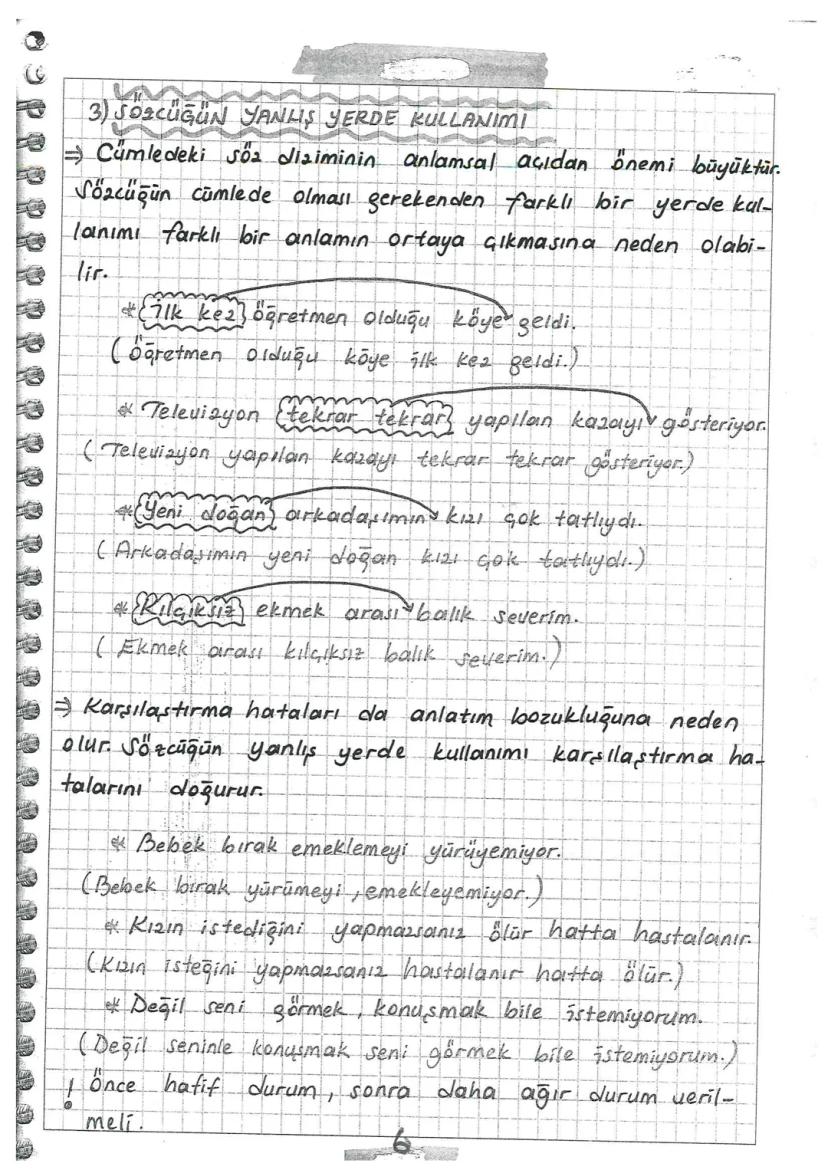 3) SÖZCÜĞÜN YANLIŞ YERDE KULLANIMI
⇒ Cümledeki söz diziminin anlamsal açıdan önemi büyüktür.
Sözcüğün cümlede olması gerekenden farklı bir yerde kul-
lanımı farklı bir anlamın ortaya çıkmasına neden olabi-
lir.
* İlk kez öğretmen olduğu köye geldi.
(Öğretmen olduğu köye ilk kez geldi.)
* Televizyon tekrar tekrar yapılan kazayı gösteriyor.
(Televizyon yapılan kazayı tekrar tekrar gösteriyor.)
* Yeni doğan arkadaşımın kızı çok tatlıydı.
(Arkadaşımın yeni doğan kızı çok tatlıydı.)
* Kılçıksız ekmek arası balık severim.
(Ekmek arası kılçıksız balık severim.)
⇒ Karşılaştırma hataları da anlatım bozukluğuna neden
olur. Sözcüğün yanlış yerde kullanımı karşılaştırma ha-
talarını doğurur.
* Bebek bırak emeklemeyi yürüyemiyor.
(Bebek bırak yürümeyi, emekleyemiyor.)
* Kızın istediğini yapmazsanız ölür hatta hastalanır.
(Kızın isteğini yapmazsanız hastalanır hatta ölür.)
* Değil seni görmek, konuşmak bile istemiyorum.
(Değil seninle konuşmak seni görmek bile istemiyorum.)
! Önce hafif durum, sonra daha ağır durum veril-
meli.
6